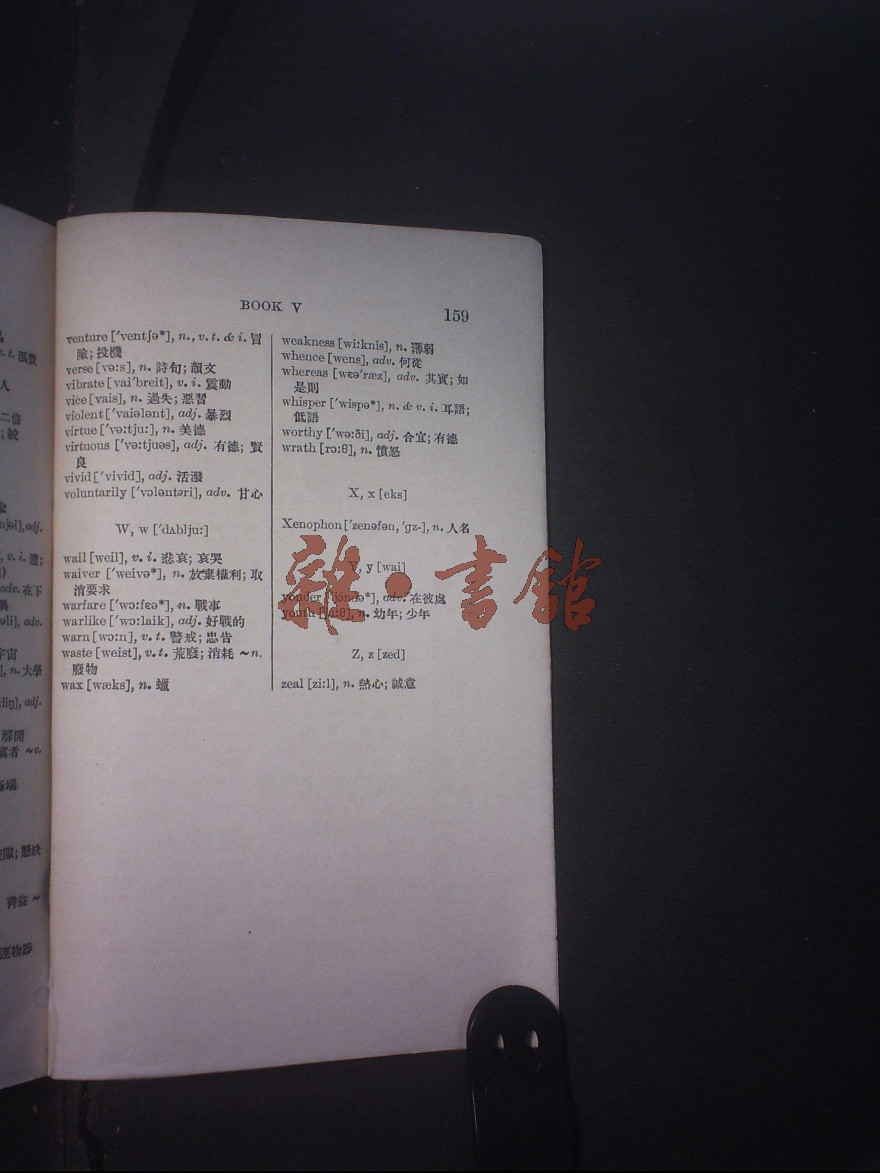 BOOK V
159
venture ['ventʃə*], n., v. t. & i. 冒
險; 投機
verse [və:s], n. 詩句; 韻文
vibrate [vai'breit], v. i. 震動
vice [vais], n. 過失; 惡習
violent ['vaiələnt], adj. 暴烈
virtue ['və:tju:], n. 美德
virtuous ['və:tjuəs], adj. 有德; 賢
良
vivid ['vivid], adj. 活潑
voluntarily ['vɔləntəri], adv. 甘心
W, w ['dʌblju:]
wail [weil], v. i. 悲哀; 哀哭
waiver ['weivə*], n. 放棄權利; 取
消要求
warfare ['wɔ:fɛə*], n. 戰事
warlike ['wɔ:laik], adj. 好戰的
warn [wɔ:n], v. t. 警戒; 忠告
waste [weist], v. t. 荒廢; 消耗 ~n.
廢物
wax [wæks], n. 蠟
weakness [wi:knis], n. 薄弱
whence [wens], adv. 何從
whereas [wɛə'ræz], adv. 其實; 如
是則
whisper ['wispə*], n. & v. i. 耳語;
低語
worthy ['wə:ði], adj. 合宜; 有德
wrath [rɔ:θ], n. 憤怒
X, x [eks]
Xenophon ['zenəfən, 'gz-], n. 人名
Y, y [wai]
yonder ['jɔndə*], adv. 在彼處
youth [ju:θ], n. 幼年; 少年
Z, z [zed]
zeal [zi:l], n. 熱心; 誠意
雜·書館